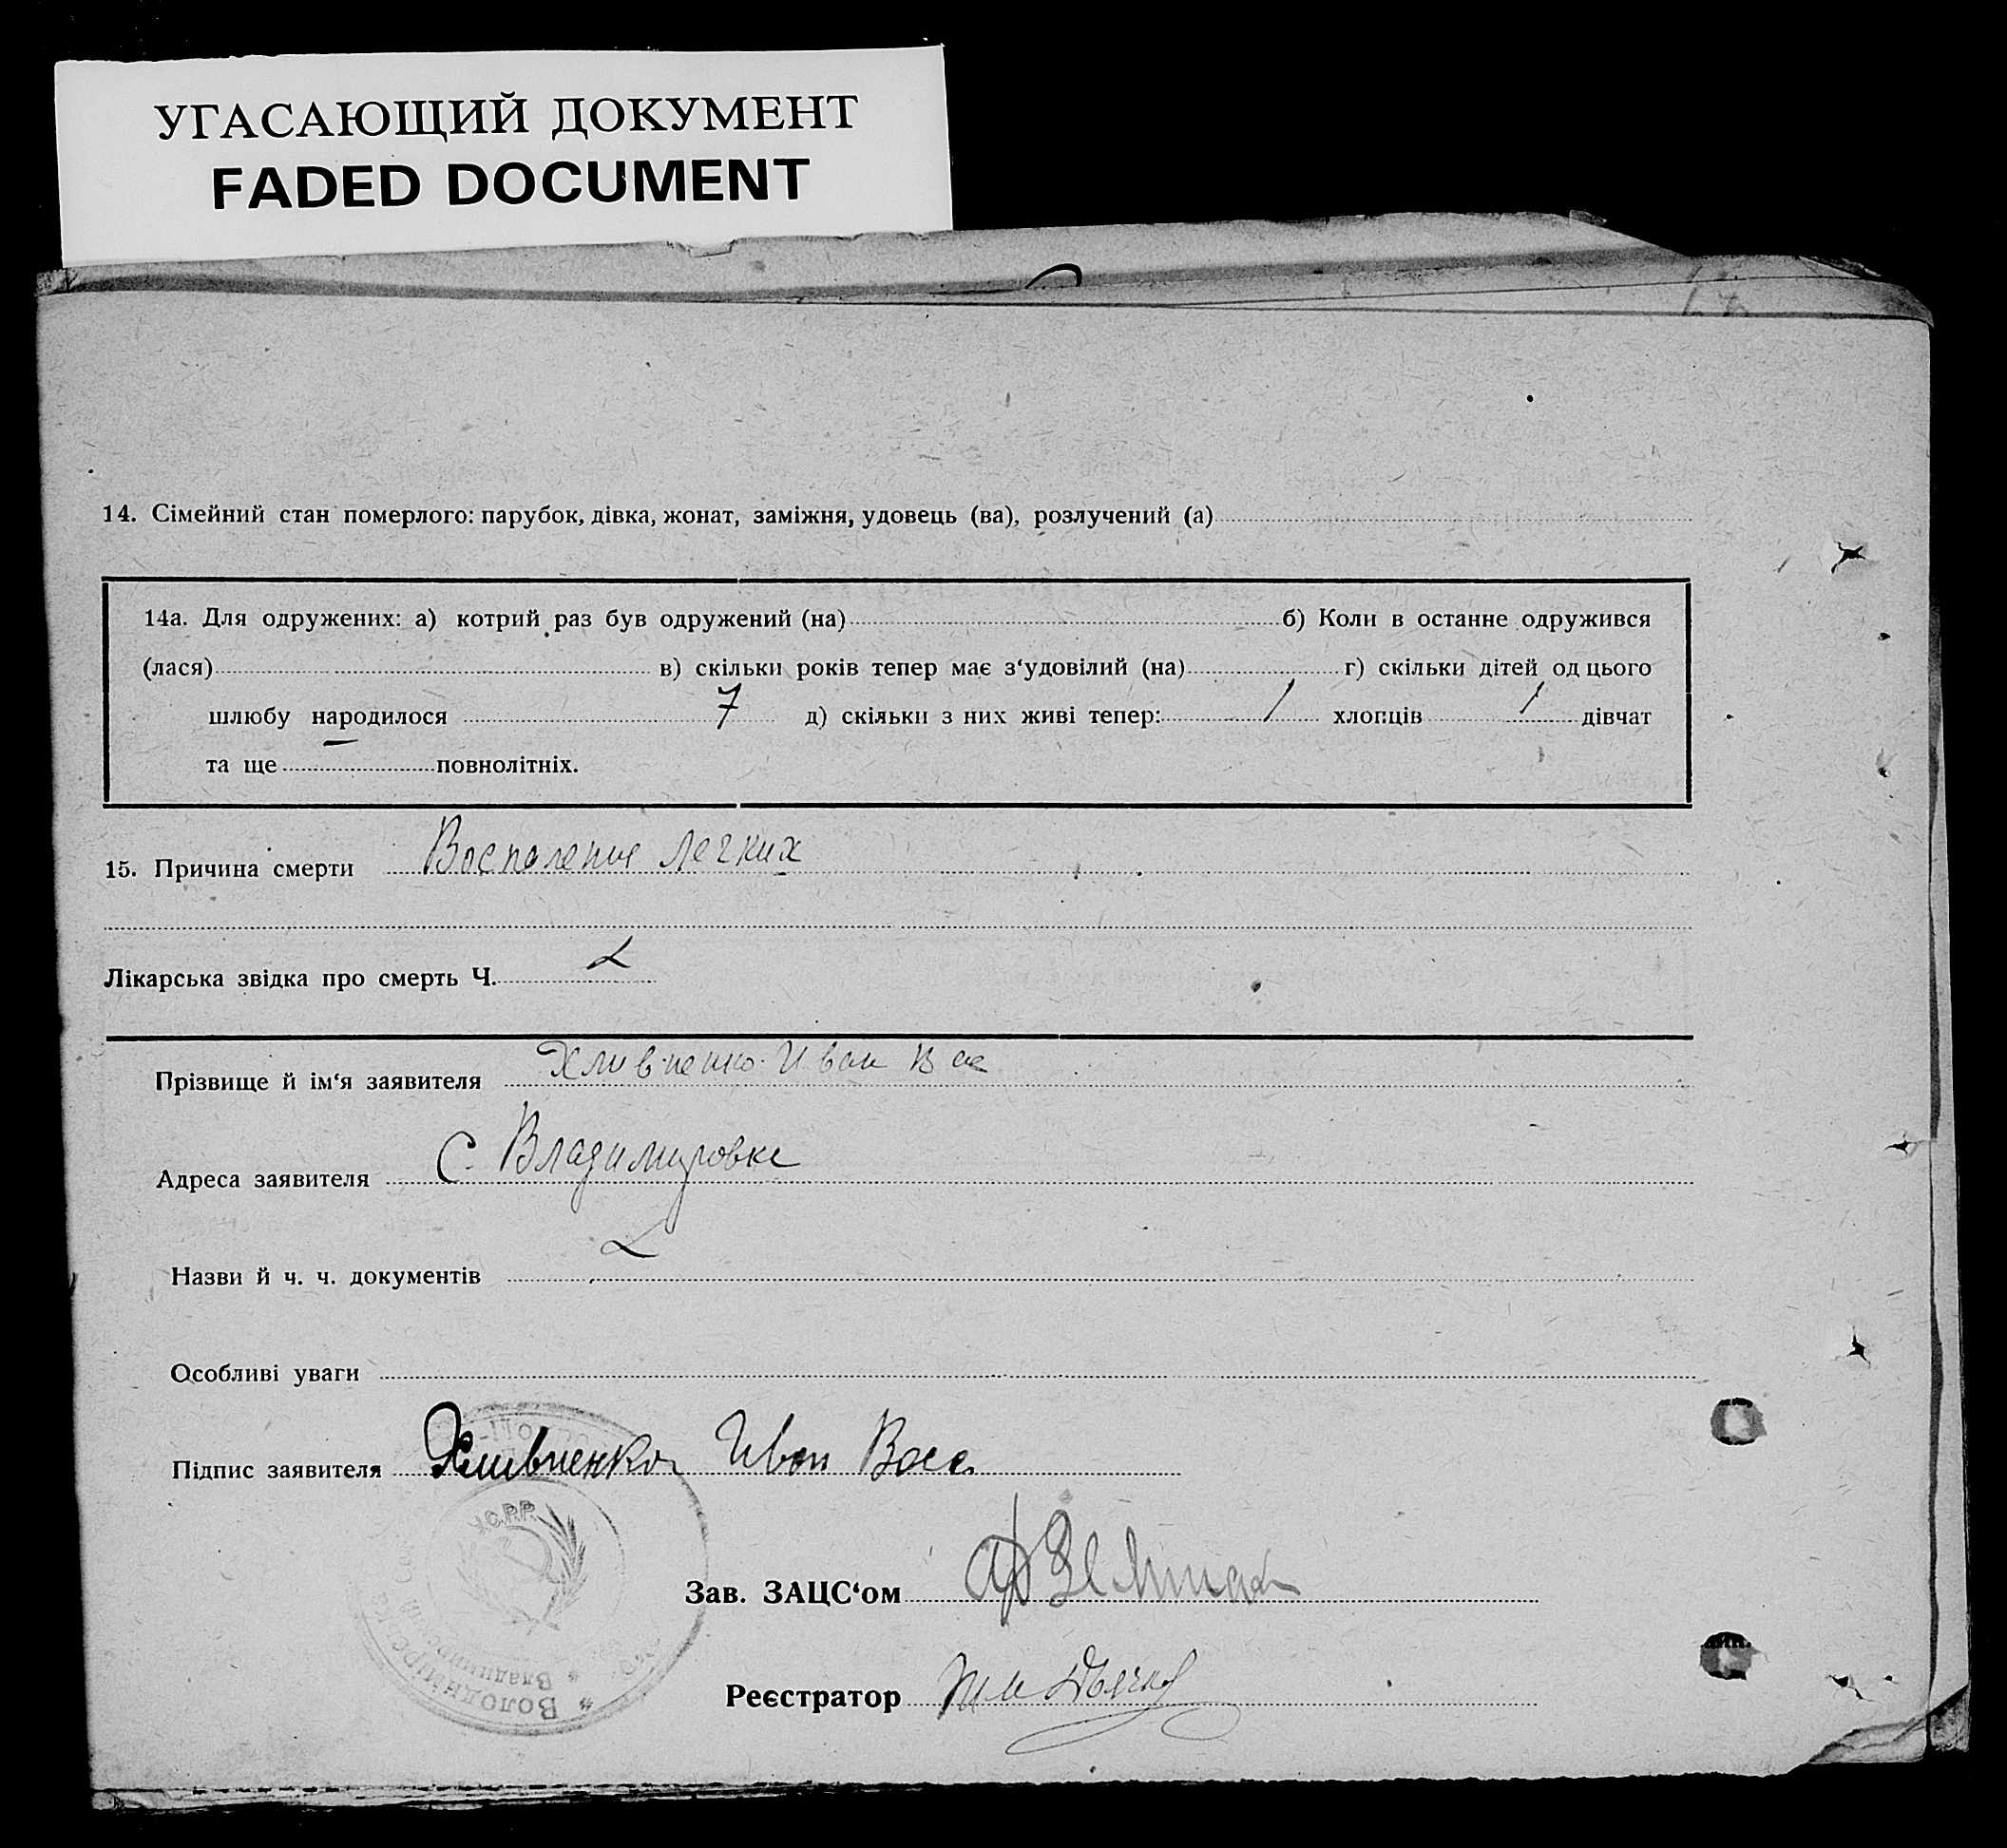 УГАСАЮЩИЙ ДОКУМЕНТ
FADED DOCUMENT
14. Сімейний стан померлого: парубок, дівка, жонат, заміжня, удовець (ва), розлучений (а)
14а. Для одружених: а) котрий раз був одружений (на) б) Коли в останне одружився
(лася) в) скільки років тепер має з‘удовілий (на) г) скільки дітей од цього
шлюбу народилося 7 д) скільки з них живі тепер: 1 хлопців 1 дівчат
та ще — повнолітніх.
15. Причина смерти Воспаление легких
Лікарська звідка про смерть Ч.
Прізвище й ім‘я заявителя Хливненко Иван Вас
Адреса заявителя С. Владимировке
Назви й ч. ч. документів
Особливі уваги
Підпис заявителя Хливненко Иван Васс
У.С.Р.Р.
Зав. ЗАЦС‘ом
Реєстратор